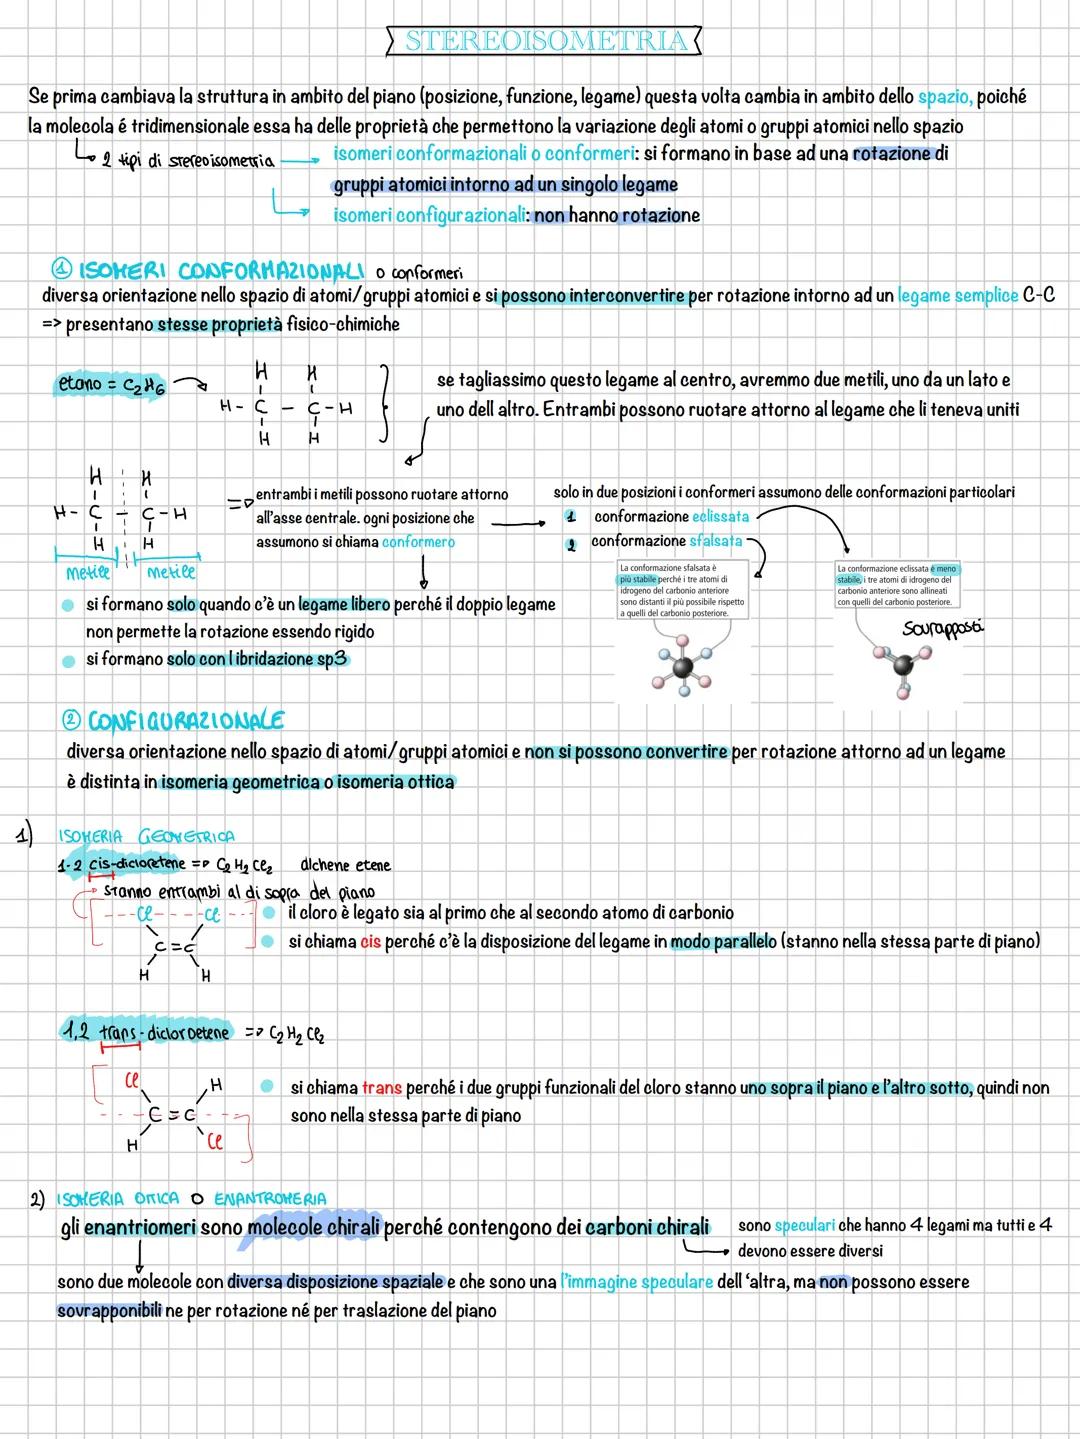 STEREOISOMETRIA
Se prima cambiava la struttura in ambito del piano (posizione, funzione, legame) questa volta cambia in ambito dello spazio, poiché
la molecola é tridimensionale essa ha delle proprietà che permettono la variazione degli atomi o gruppi atomici nello spazio
2 tipi di stereoisometria
isomeri conformazionali o conformeri: si formano in base ad una rotazione di
gruppi atomici intorno ad un singolo legame
isomeri configurazionali: non hanno rotazione
1 ISOMERI CONFORMAZIONALI o conformeri
diversa orientazione nello spazio di atomi/gruppi atomici e si possono interconvertire per rotazione intorno ad un legame semplice C-C
=> presentano stesse proprietà fisico-chimiche
etano = C2H6
H H
H - C - C - H
H H
se tagliassimo questo legame al centro, avremmo due metili, uno da un lato e
uno dell altro. Entrambi possono ruotare attorno al legame che li teneva uniti
H H
H - C - C - H
H H
metile metile
entrambi i metili possono ruotare attorno
all'asse centrale. ogni posizione che
assumono si chiama conformero
solo in due posizioni i conformeri assumono delle conformazioni particolari
1 conformazione eclissata
2 conformazione sfalsata
La conformazione sfalsata è
più stabile perché i tre atomi di
idrogeno del carbonio anteriore
sono distanti il più possibile rispetto
a quelli del carbonio posteriore.
La conformazione eclissata è meno
stabile, i tre atomi di idrogeno del
carbonio anteriore sono allineati
con quelli del carbonio posteriore.
sovrapposti
si formano solo quando c'è un legame libero perché il doppio legame
non permette la rotazione essendo rigido
si formano solo con l ibridazione sp3
2 CONFIGURAZIONALE
diversa orientazione nello spazio di atomi/gruppi atomici e non si possono convertire per rotazione attorno ad un legame
è distinta in isomeria geometrica o isomeria ottica
1) ISOMERIA GEOMETRICA
1-2 cis-dicloretene => C2H2Cl2 alchene etene
stanno entrambi al di sopra del piano
Cl Cl
C=C
H H
il cloro è legato sia al primo che al secondo atomo di carbonio
si chiama cis perché c'è la disposizione del legame in modo parallelo (stanno nella stessa parte di piano)
1,2 trans-dicloroetene => C2H2Cl2
Cl H
C=C
H Cl
si chiama trans perché i due gruppi funzionali del cloro stanno uno sopra il piano e l'altro sotto, quindi non
sono nella stessa parte di piano
2) ISOMERIA OTTICA O ENANTROMERIA
gli enantriomeri sono molecole chirali perché contengono dei carboni chirali
sono speculari che hanno 4 legami ma tutti e 4
devono essere diversi
sono due molecole con diversa disposizione spaziale e che sono una l'immagine speculare dell 'altra, ma non possono essere
sovrapponibili ne per rotazione né per traslazione del piano